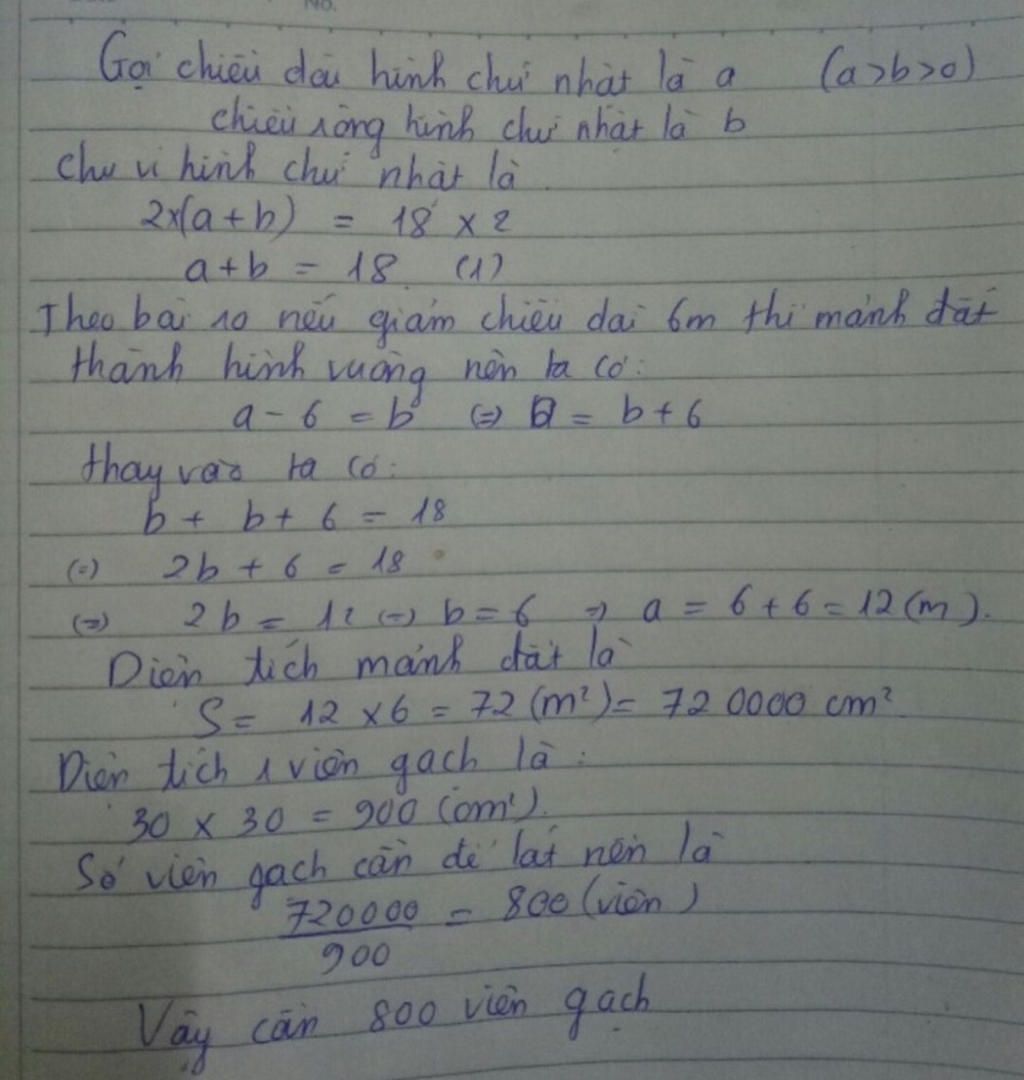 No.
Gọi chiều dài hình chữ nhật là a (a>b>0)
chiều rộng hình chữ nhật là b
Chu vi hình chữ nhật là
2x(a+b) = 18 x 2
a+b = 18 (1)
Theo bài ra nếu giảm chiều dài 6m thì mảnh đất
thành hình vuông nên ta có:
a - 6 = b (=) a = b + 6
thay vào ta có:
b + b + 6 = 18
(=) 2b + 6 = 18
(=) 2b = 12 (=) b = 6 => a = 6 + 6 = 12 (m).
Diện tích mảnh đất là
S = 12 x 6 = 72 (m²) = 720000 cm²
Diện tích 1 viên gạch là :
30 x 30 = 900 (cm²).
Số viên gạch cần để lát nền là
720000 / 900 = 800 (viên)
Vậy cần 800 viên gạch